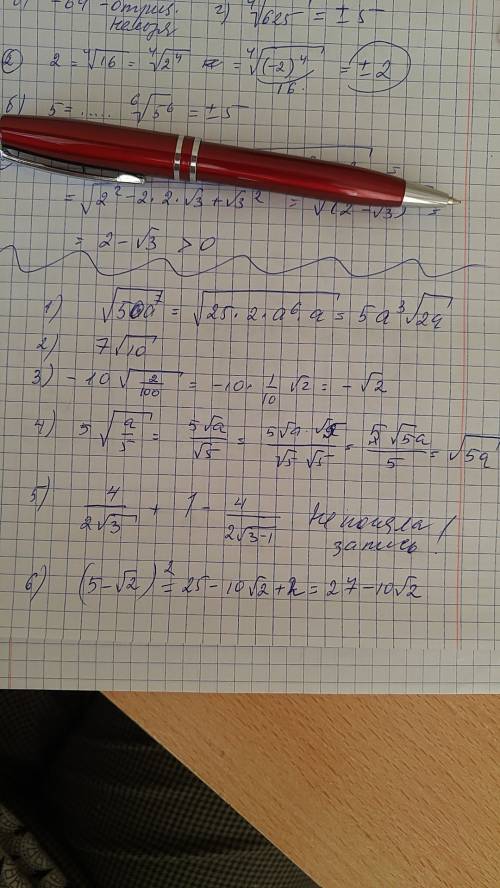 -64 - отриц.
г) ⁴√625 = ± 5
2 = ⁴√16 = ⁴√2⁴ = ⁴√(-2)⁴ = ± 2
16.
б) 5 = ..... ⁶√5⁶ = ± 5
= √2² - 2 · 2 · √3 + √3² = √(2 - √3) =
= 2 - √3 > 0
1) √50a⁷ = √25 · 2 · a⁶ · a = 5a³√2a
2) 7√10
3) - 10 √2/100 = -10 · 1/10 √2 = - √2
4) 5 √a/5 = 5√a/√5 = 5√a · √5/√5 · √5 = 5 √5a/5 = √5a
5) 4/2√3 + 1 - 4/2√3-1 Не поняла
запись!
6) (5 - √2)² = 25 - 10√2 + 2 = 27 - 10√2